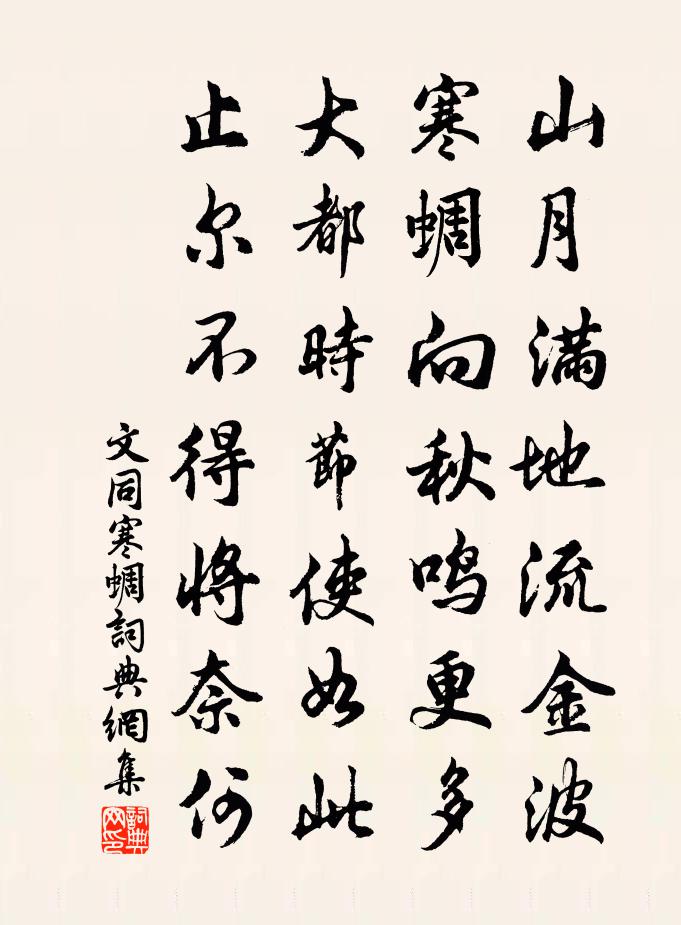 山月满地流金波
寒蜩向秋鸣更多
大都時節使如此
止尔不得将奈何
文同寒蜩詞典網集
詞典網印